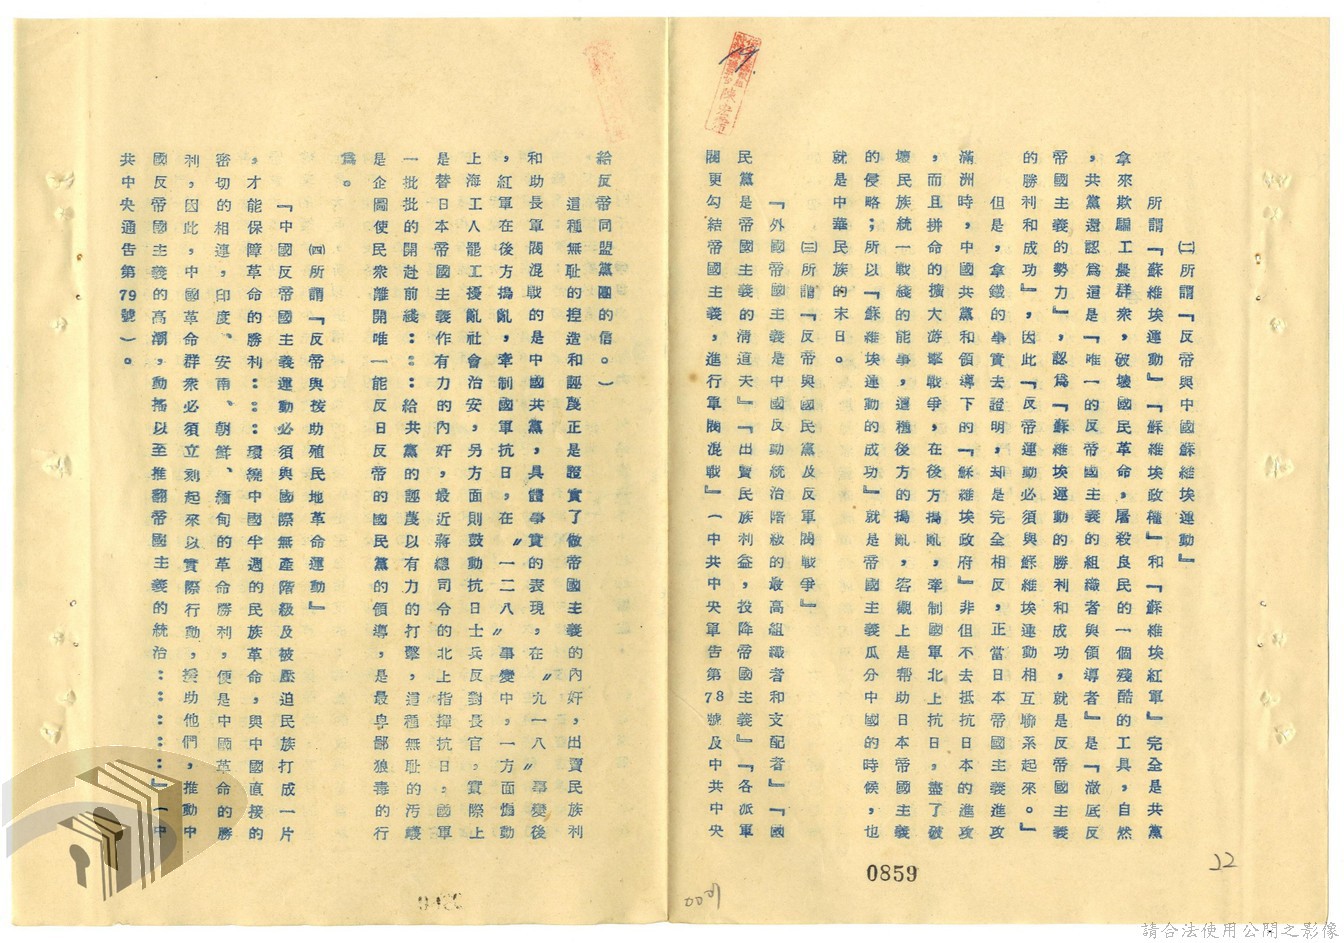 ㈡所謂『反帝與中國蘇維埃運動』
所謂『蘇維埃運動』『蘇維埃政權』和『蘇維埃紅軍』完全是共黨
拿來欺騙工農群衆，破壞國民革命，屠殺良民的一個殘酷的工具，自然
，共黨還認爲這是『唯一的反帝國主義的組織者與領導者』是『澈底反
帝國主義的勢力』，認爲『蘇維埃運動的勝利和成功，就是反帝國主義
的勝利和成功』，因此『反帝運動必須與蘇維埃運動相互聯系起來。』
但是，拿鐵的事實去證明，却是完全相反，正當日本帝國主義進攻
滿洲時，中國共黨和領導下的『蘇維埃政府』非但不去抵抗日本的進攻
，而且拼命的擴大游擊戰爭，在後方搗亂，牽制國軍北上抗日，盡了破
壞民族統一戰綫的能事，這種後方的搗亂，客觀上是帮助日本帝國主義
的侵略；所以『蘇維埃運動的成功』就是帝國主義瓜分中國的時候，也
就是中華民族的末日。
㈢所謂『反帝與國民黨及反軍閥戰爭』
『外國帝國主義是中國反動統治階級的最高組織者和支配者』『國
民黨是帝國主義的清道夫』『出賣民族利益，投降帝國主義』『各派軍
閥更勾結帝國主義，進行軍閥混戰』（中共中央軍告第78號及中共中央
給反帝同盟黨團的信。）
這種無恥的揑造和誣蔑正是證實了做帝國主義的內奸，出賣民族利
和助長軍閥混戰的是中國共黨，具體事實的表現，在〝九一八〞事變後
，紅軍在後方搗亂，牽制國軍抗日，在〝一二八〞事變中，一方面慪動
上海工人罷工擾亂社會治安，另方面則鼓動抗日士兵反對長官，實際上
是替日本帝國主義作有力的內奸，最近蔣總司令的北上指揮抗日，國軍
一批批的開赴前綫：：：給共黨的誣蔑以有力的打擊，這種無恥的污衊
是企圖使民衆離開唯一能反日反帝的國民黨的領導，是最卑鄙狼毒的行
爲。
㈣所謂『反帝與援助殖民地革命運動』
『中國反帝國主義運動必須與國際無產階級及被壓迫民族打成一片
，才能保障革命的勝利：：：環繞中國半週的民族革命，與中國直接的
密切的相連，印度、安南、朝鮮、緬甸的革命勝利，便是中國革命的勝
利，因此，中國革命群衆必須立刻起來以實際行動，援助他們，推動中
國反帝國主義的高潮，動搖以至推翻帝國主義的統治：：：：：：』（中
共中央通告第79號）。
0859
22
請合法使用公開之影像